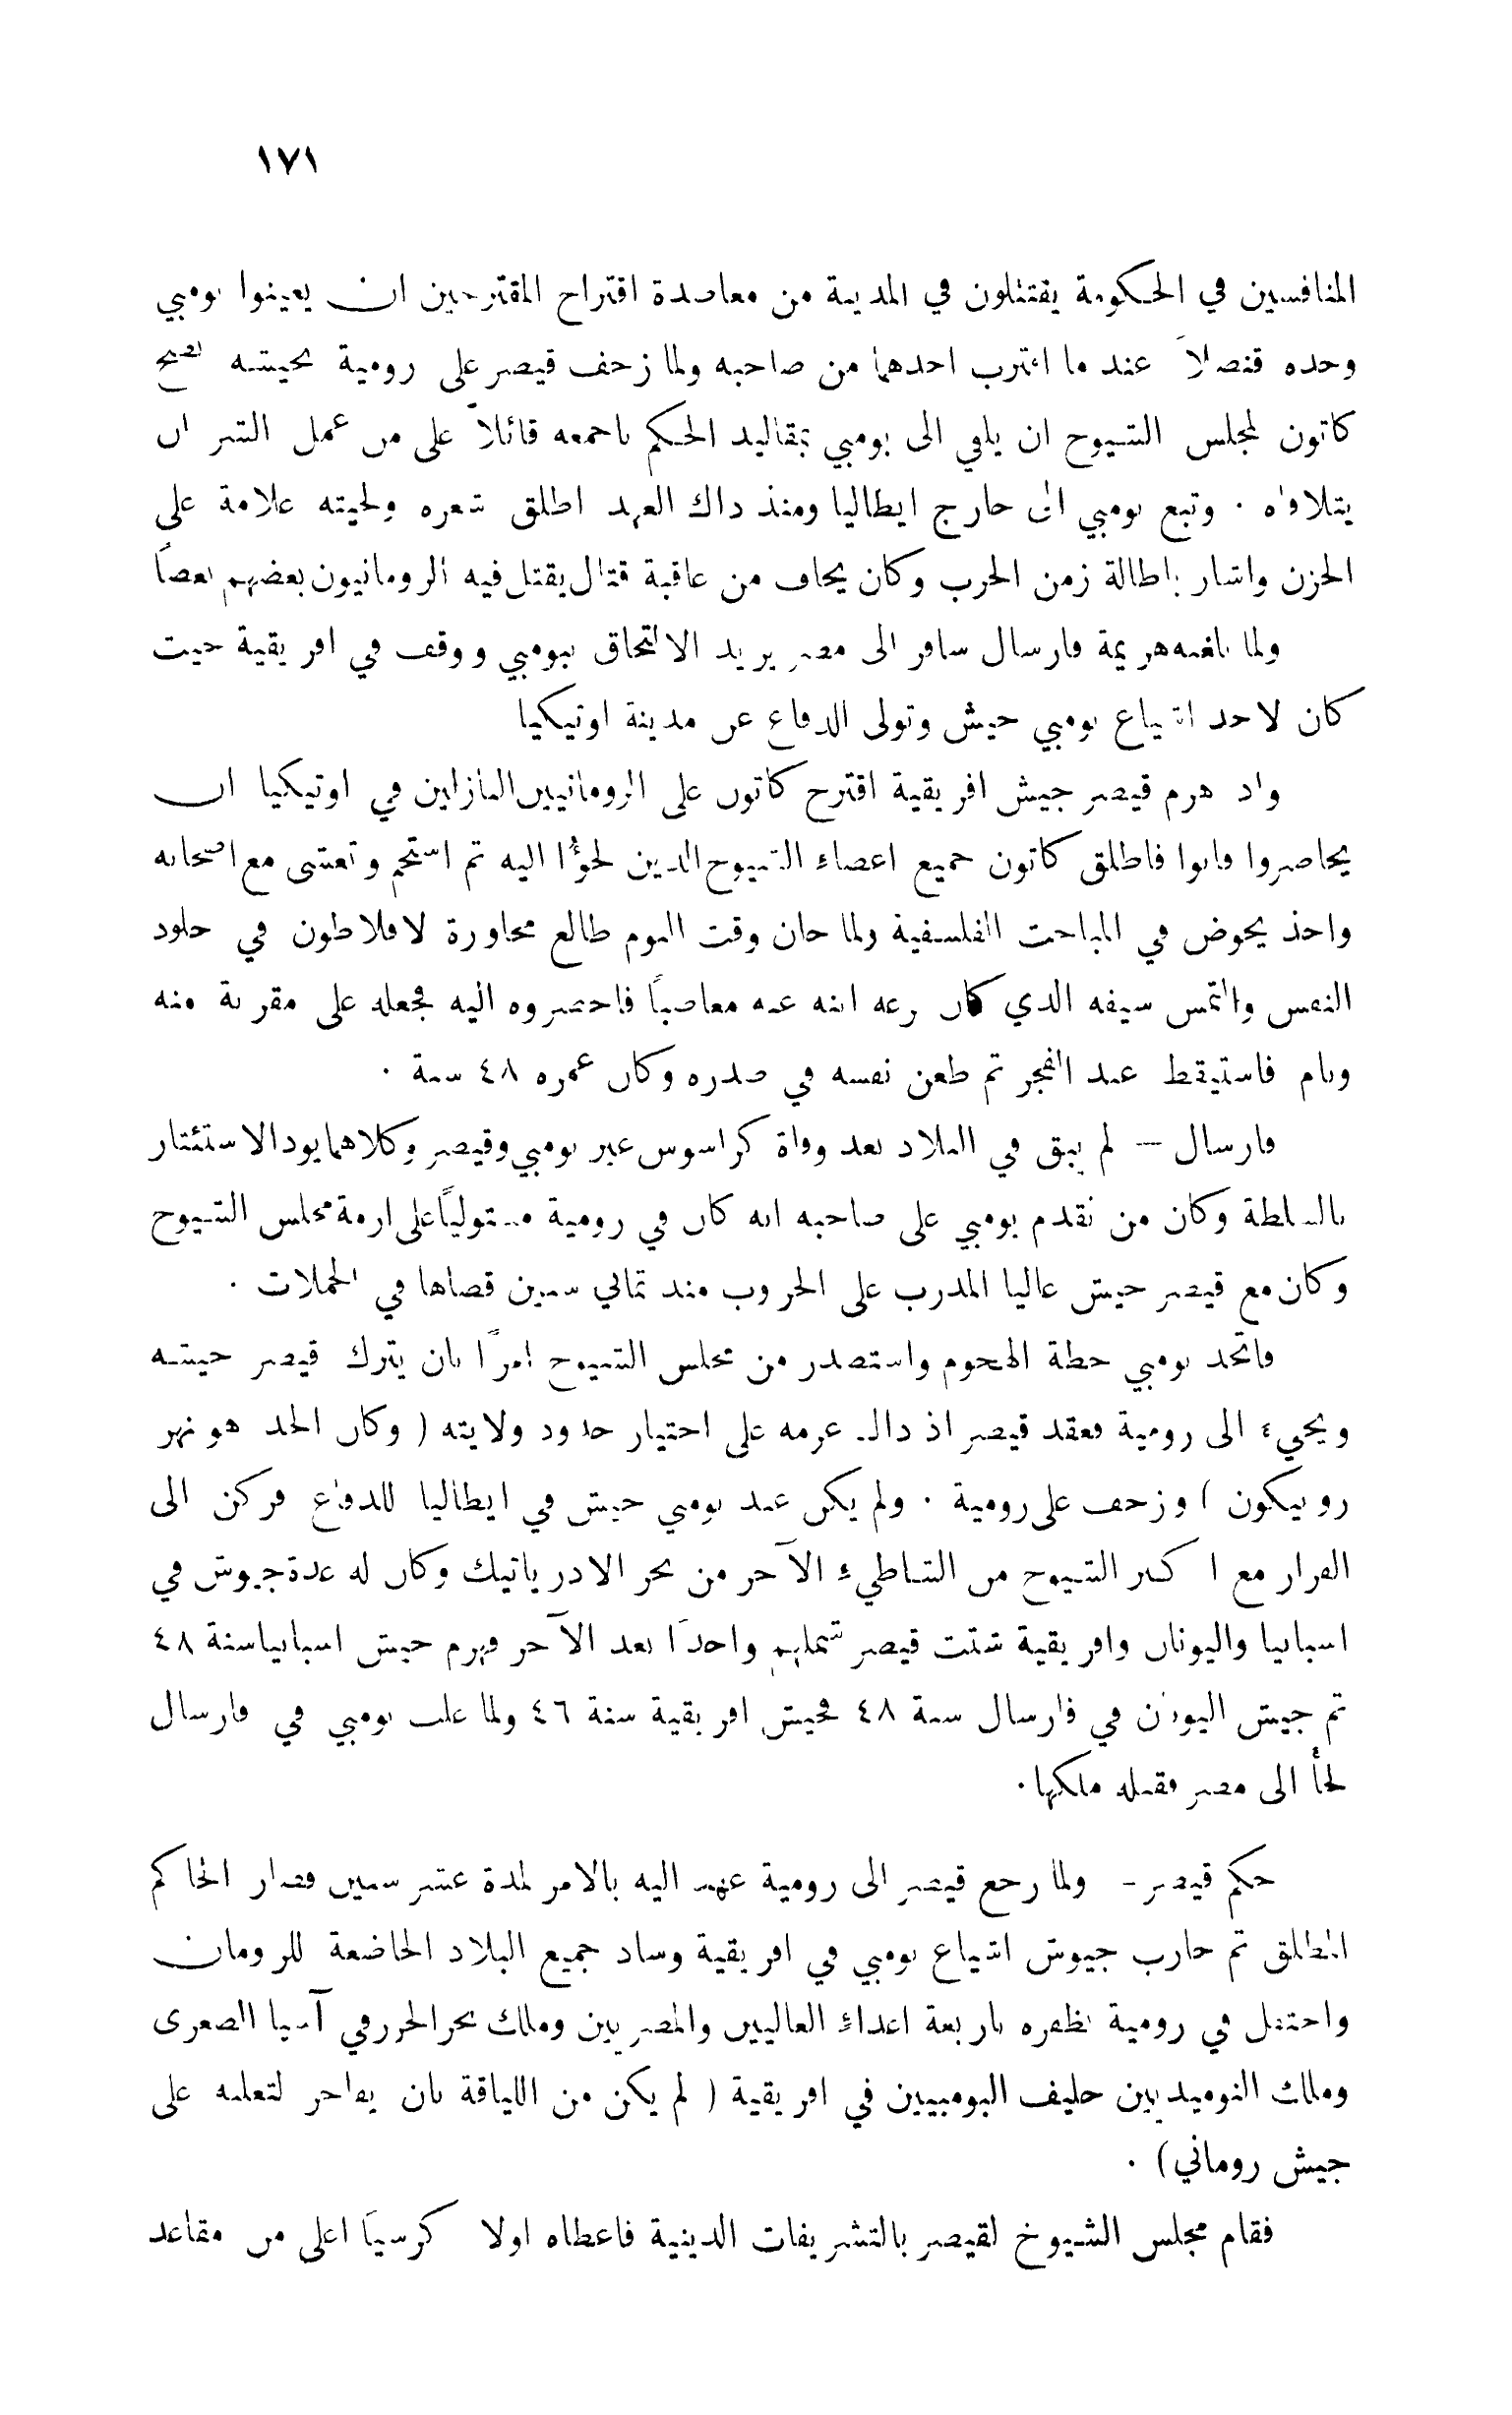 ١٧١
المنافسين في الحكومة يقتتلون في المدينة من معاضدة اقتراح المقترحين ان يعينوا بومبي
وحده قنصلاً عند ما اقترب احدهما من صاحبه ولما زحف قيصر على رومية بجيشه نصح
كاتون لمجلس الشيوخ ان يلقي الى بومبي بمقاليد الحكم باجمعه قائلاً على من عمل الشر ان
يتلافاه . وتبع بومبي الى خارج ايطاليا ومنذ ذاك العهد اطلق شعره ولحيته علامة على
الحزن واشار باطالة زمن الحرب وكان يخاف من عاقبة قتال يقتل فيه الرومانيون بعضهم بعضاً
ولما بلغته هزيمة فارسال سافر الى مصر يريد الالتحاق ببومبي ووقف في افريقية حيث
كان لاحد اشياع بومبي جيش وتولى الدفاع عن مدينة اوتيكيا
واذ هزم قيصر جيش افريقية اقترح كاتون على الرومانيين النازلين في اوتيكيا ان
يحاصروا فابوا فاطلق كاتون جميع اعضاء الشيوخ الذين لجؤا اليه ثم استحم وتعشى مع اصحابه
واخذ يخوض في المباحث الفلسفية ولما حان وقت النوم طالع محاورة لافلاطون في خلود
النفس والتمس سيفه الذي كان نزعه ابنه عنه مغاضباً فاحضروه اليه فجعله على مقربة منه
ونام فاستيقظ عند الفجر ثم طعن نفسه في صدره وكان عمره ٤٨ سنة .
فارسال — لم يبق في البلاد بعد وفاة كراسوس غير بومبي وقيصر وكلاهما يود الاستئثار
بالسلطة وكان من تقدم بومبي على صاحبه انه كان في رومية مستولياً على ازمة مجلس الشيوخ
وكان مع قيصر جيش غاليا المدرب على الحروب منذ ثماني سنين قضاها في الحملات .
فاتخذ بومبي خطة الهجوم واستصدر من مجلس الشيوخ امراً بان يترك قيصر جيشه
ويجيء الى رومية فعقد قيصر اذ ذاك عزمه على اجتياز حدود ولايته ( وكان الحد هو نهر
روبيكون ) وزحف على رومية . ولم يكن عند بومبي جيش في ايطاليا للدفاع فركن الى
الفرار مع اكثر الشيوخ من الشاطيء الآخر من بحر الادرياتيك وكان له عدة جيوش في
اسبانيا واليونان وافريقية شتت قيصر شملهم واحداً بعد الآخر فهزم جيش اسبانيا سنة ٤٨
ثم جيش اليونان في فارسال سنة ٤٨ فجيش افريقية سنة ٤٦ ولما غلب بومبي في فارسال
لجأ الى مصر فقتله ملكها .
حكم قيصر - ولما رجع قيصر الى رومية عهد اليه بالامر لمدة عشر سنين فصار الحاكم
المطلق ثم حارب جيوش اشياع بومبي في افريقية وساد جميع البلاد الخاضعة للرومان
واحتفل في رومية بظفره باربعة اعداء الغاليين والمصريين وملك بحر الخزر في آسيا الصغرى
وملك النوميديين حليف البومبيين في افريقية ( لم يكن من اللياقة بان يفاخر لتغلبه على
جيش روماني ) .
فقام مجلس الشيوخ لقيصر بالتشريفات الدينية فاعطاه اولا كرسياً اعلى من مقاعد